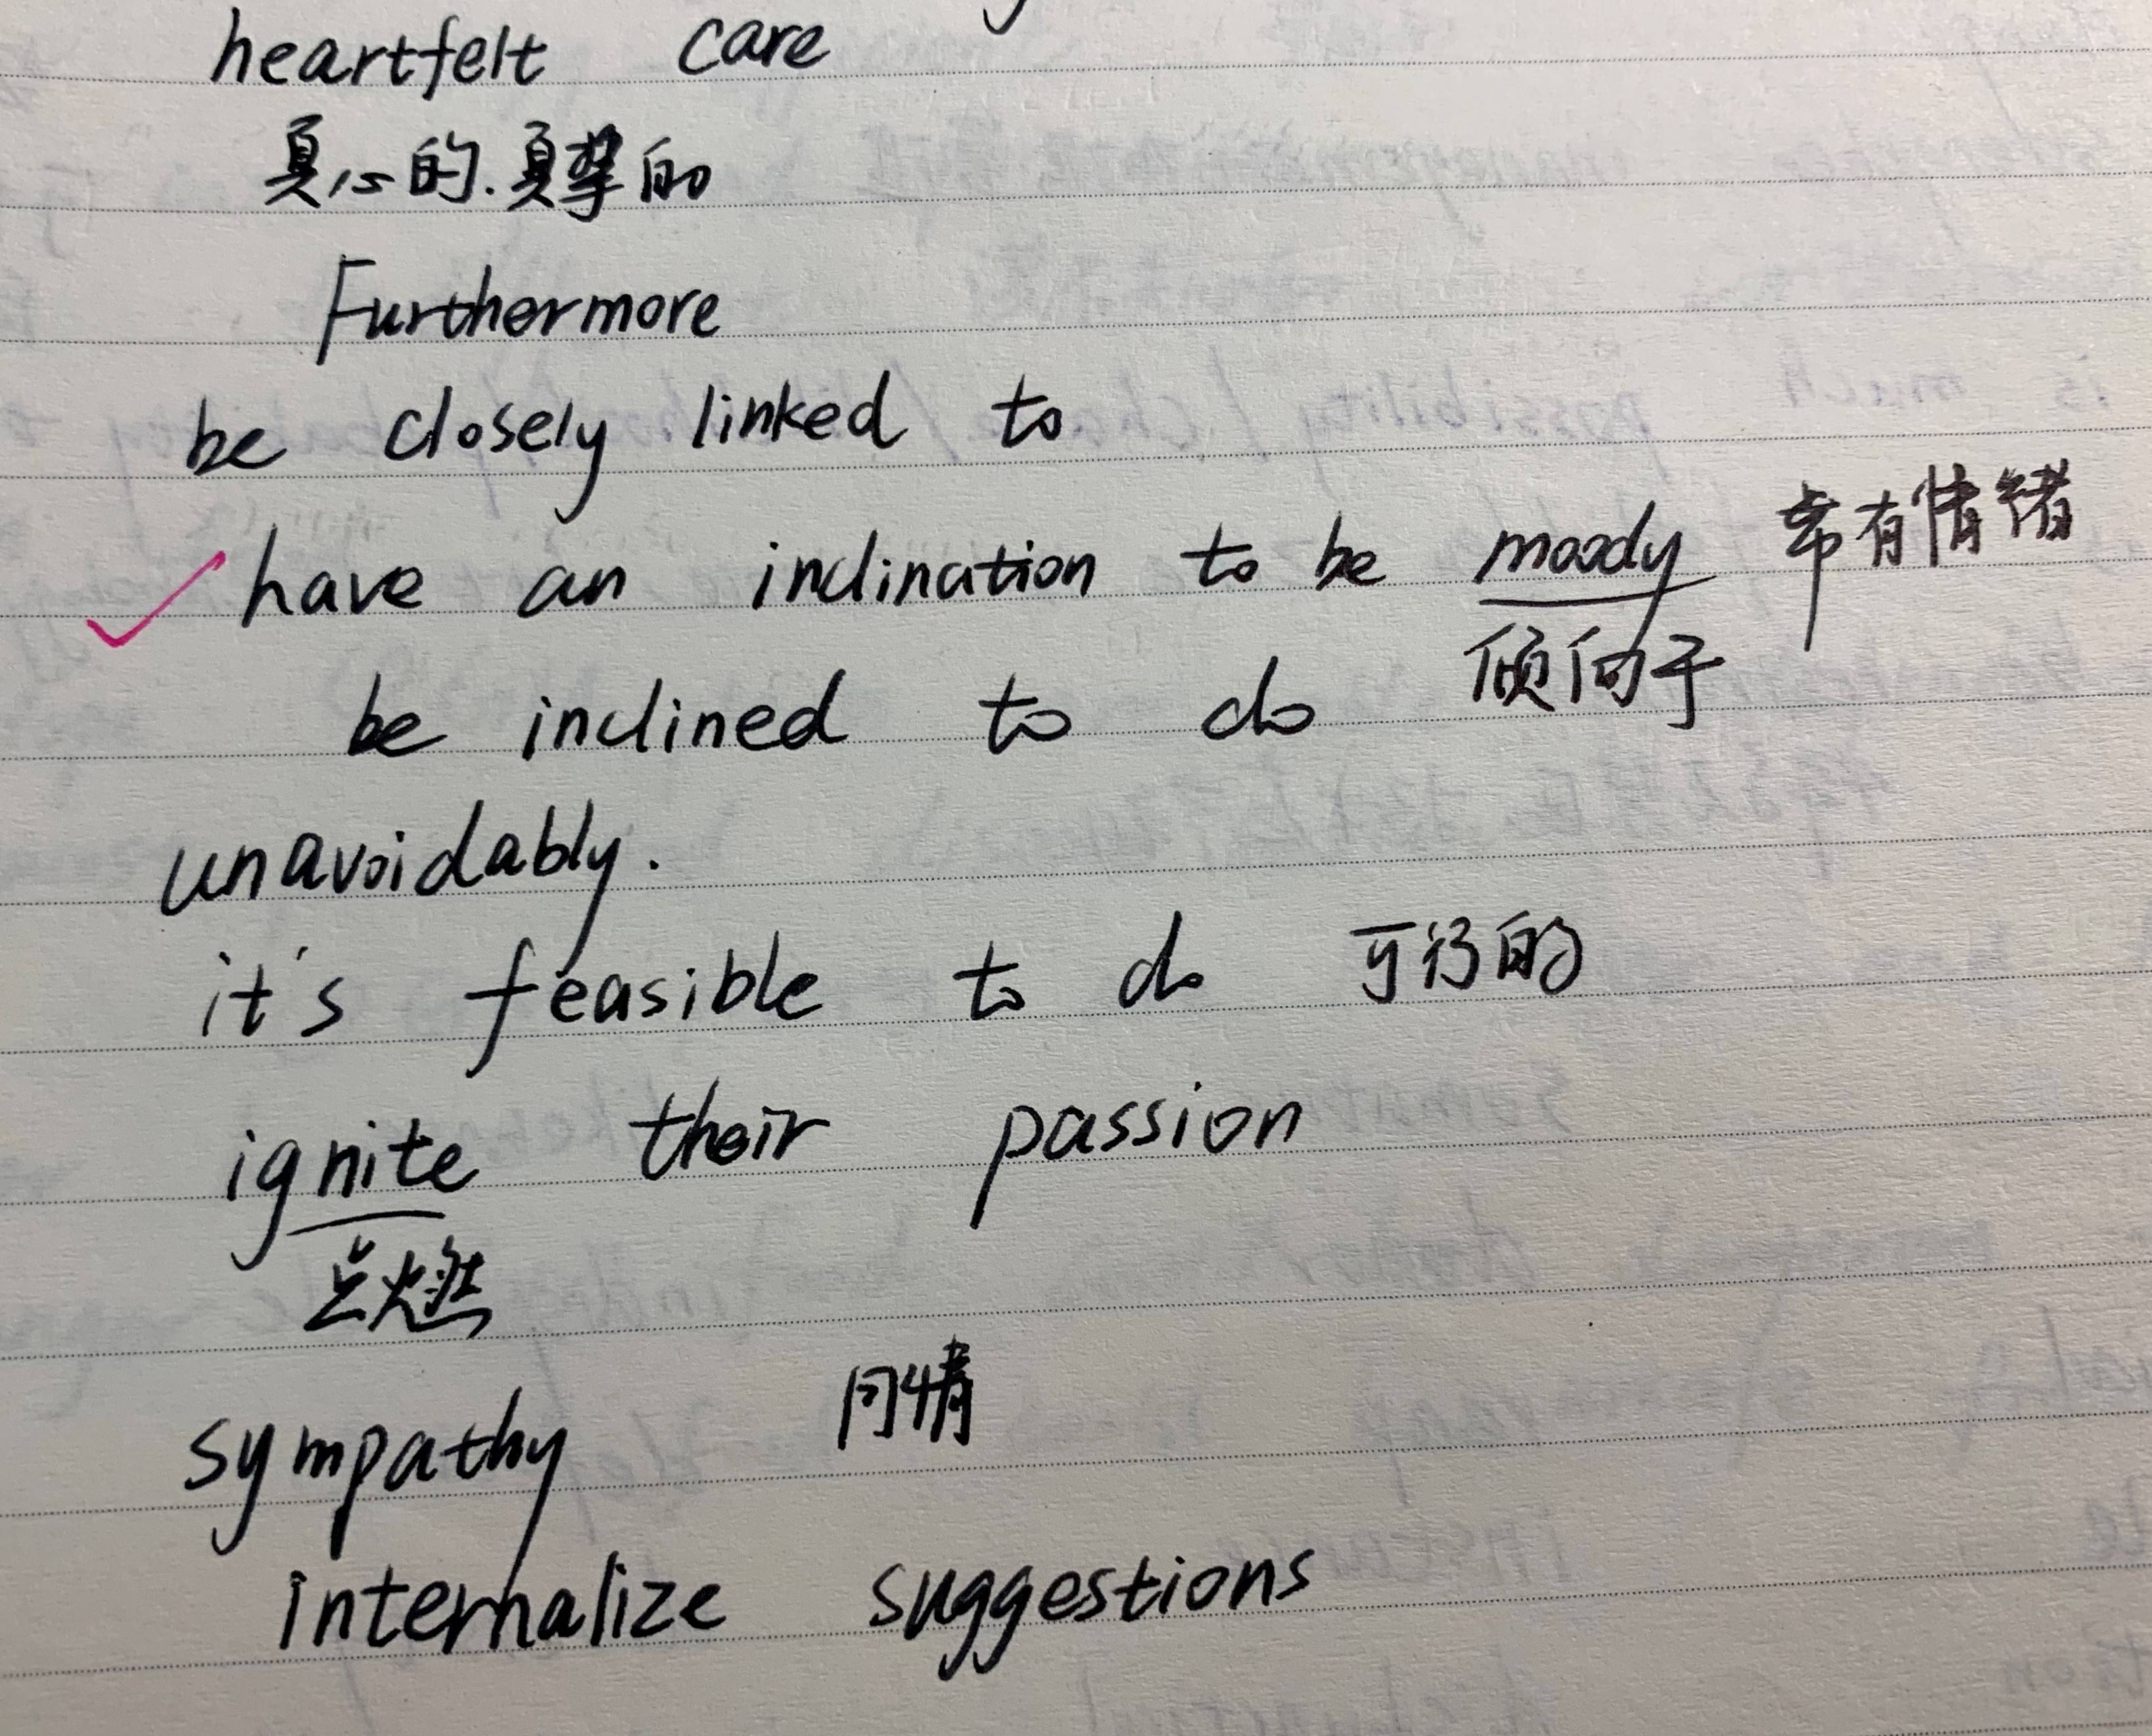 heartfelt care
真心的.真挚的
Furthermore
be closely linked to
have an inclination to be moody 常有情绪
倾向于
be inclined to do
unavoidably.
it's feasible to do 可行的
ignite their passion
点燃
sympathy 同情
internalize suggestions